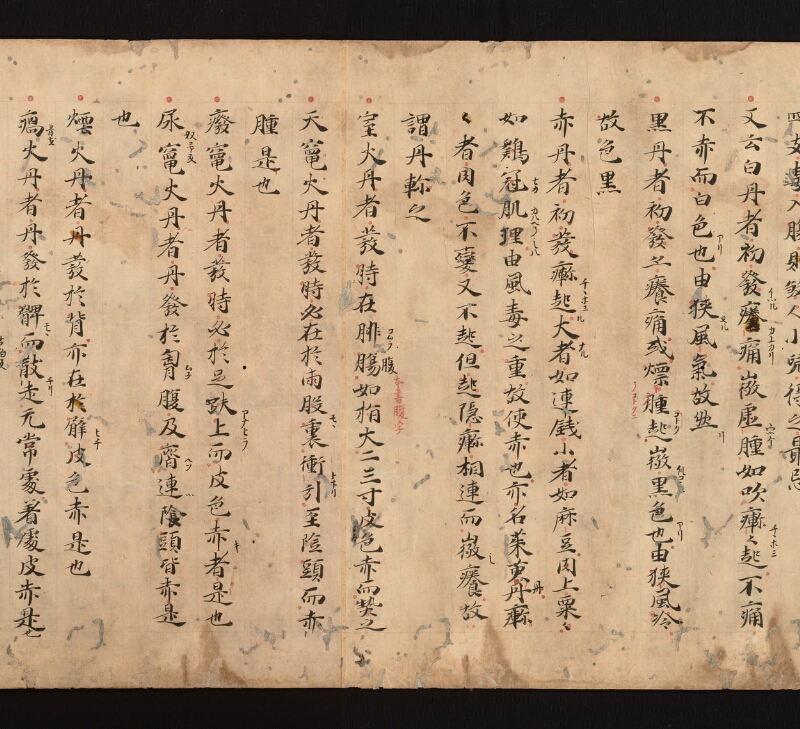 四支毒入腹則殺人小児得之最忌
又云白丹者初發癢痛微虚腫如吹𤺋〻起不痛
不赤而白色也由挾風氣故然
黒丹者初發亦癢痛或熛腫起微黒色也由挾風冷
故色黒
赤丹者初發𤺋起大者如連錢小者如麻豆肉上粟〻
如鷄冠肌理由風毒之重故使赤也亦名茱萸丹𤺋
〻者肉色不變又不起但起隠𤺋相連而微癢故
謂丹軫之
室火丹者發時在腓腸如指大二三寸皮色赤而熱之
天竈火丹者發時必在於兩股裏衝引至陰頭而赤
腫是也
廢竈火丹者發時必於足趺上而皮色赤者是也
尿竈火丹者丹發於胷腹及齊連陰頭皆赤是
也
熛火丹者丹發於背亦在於臂皮色赤是也
瘑火丹者丹發於髀而散走无常處著處皮赤是也